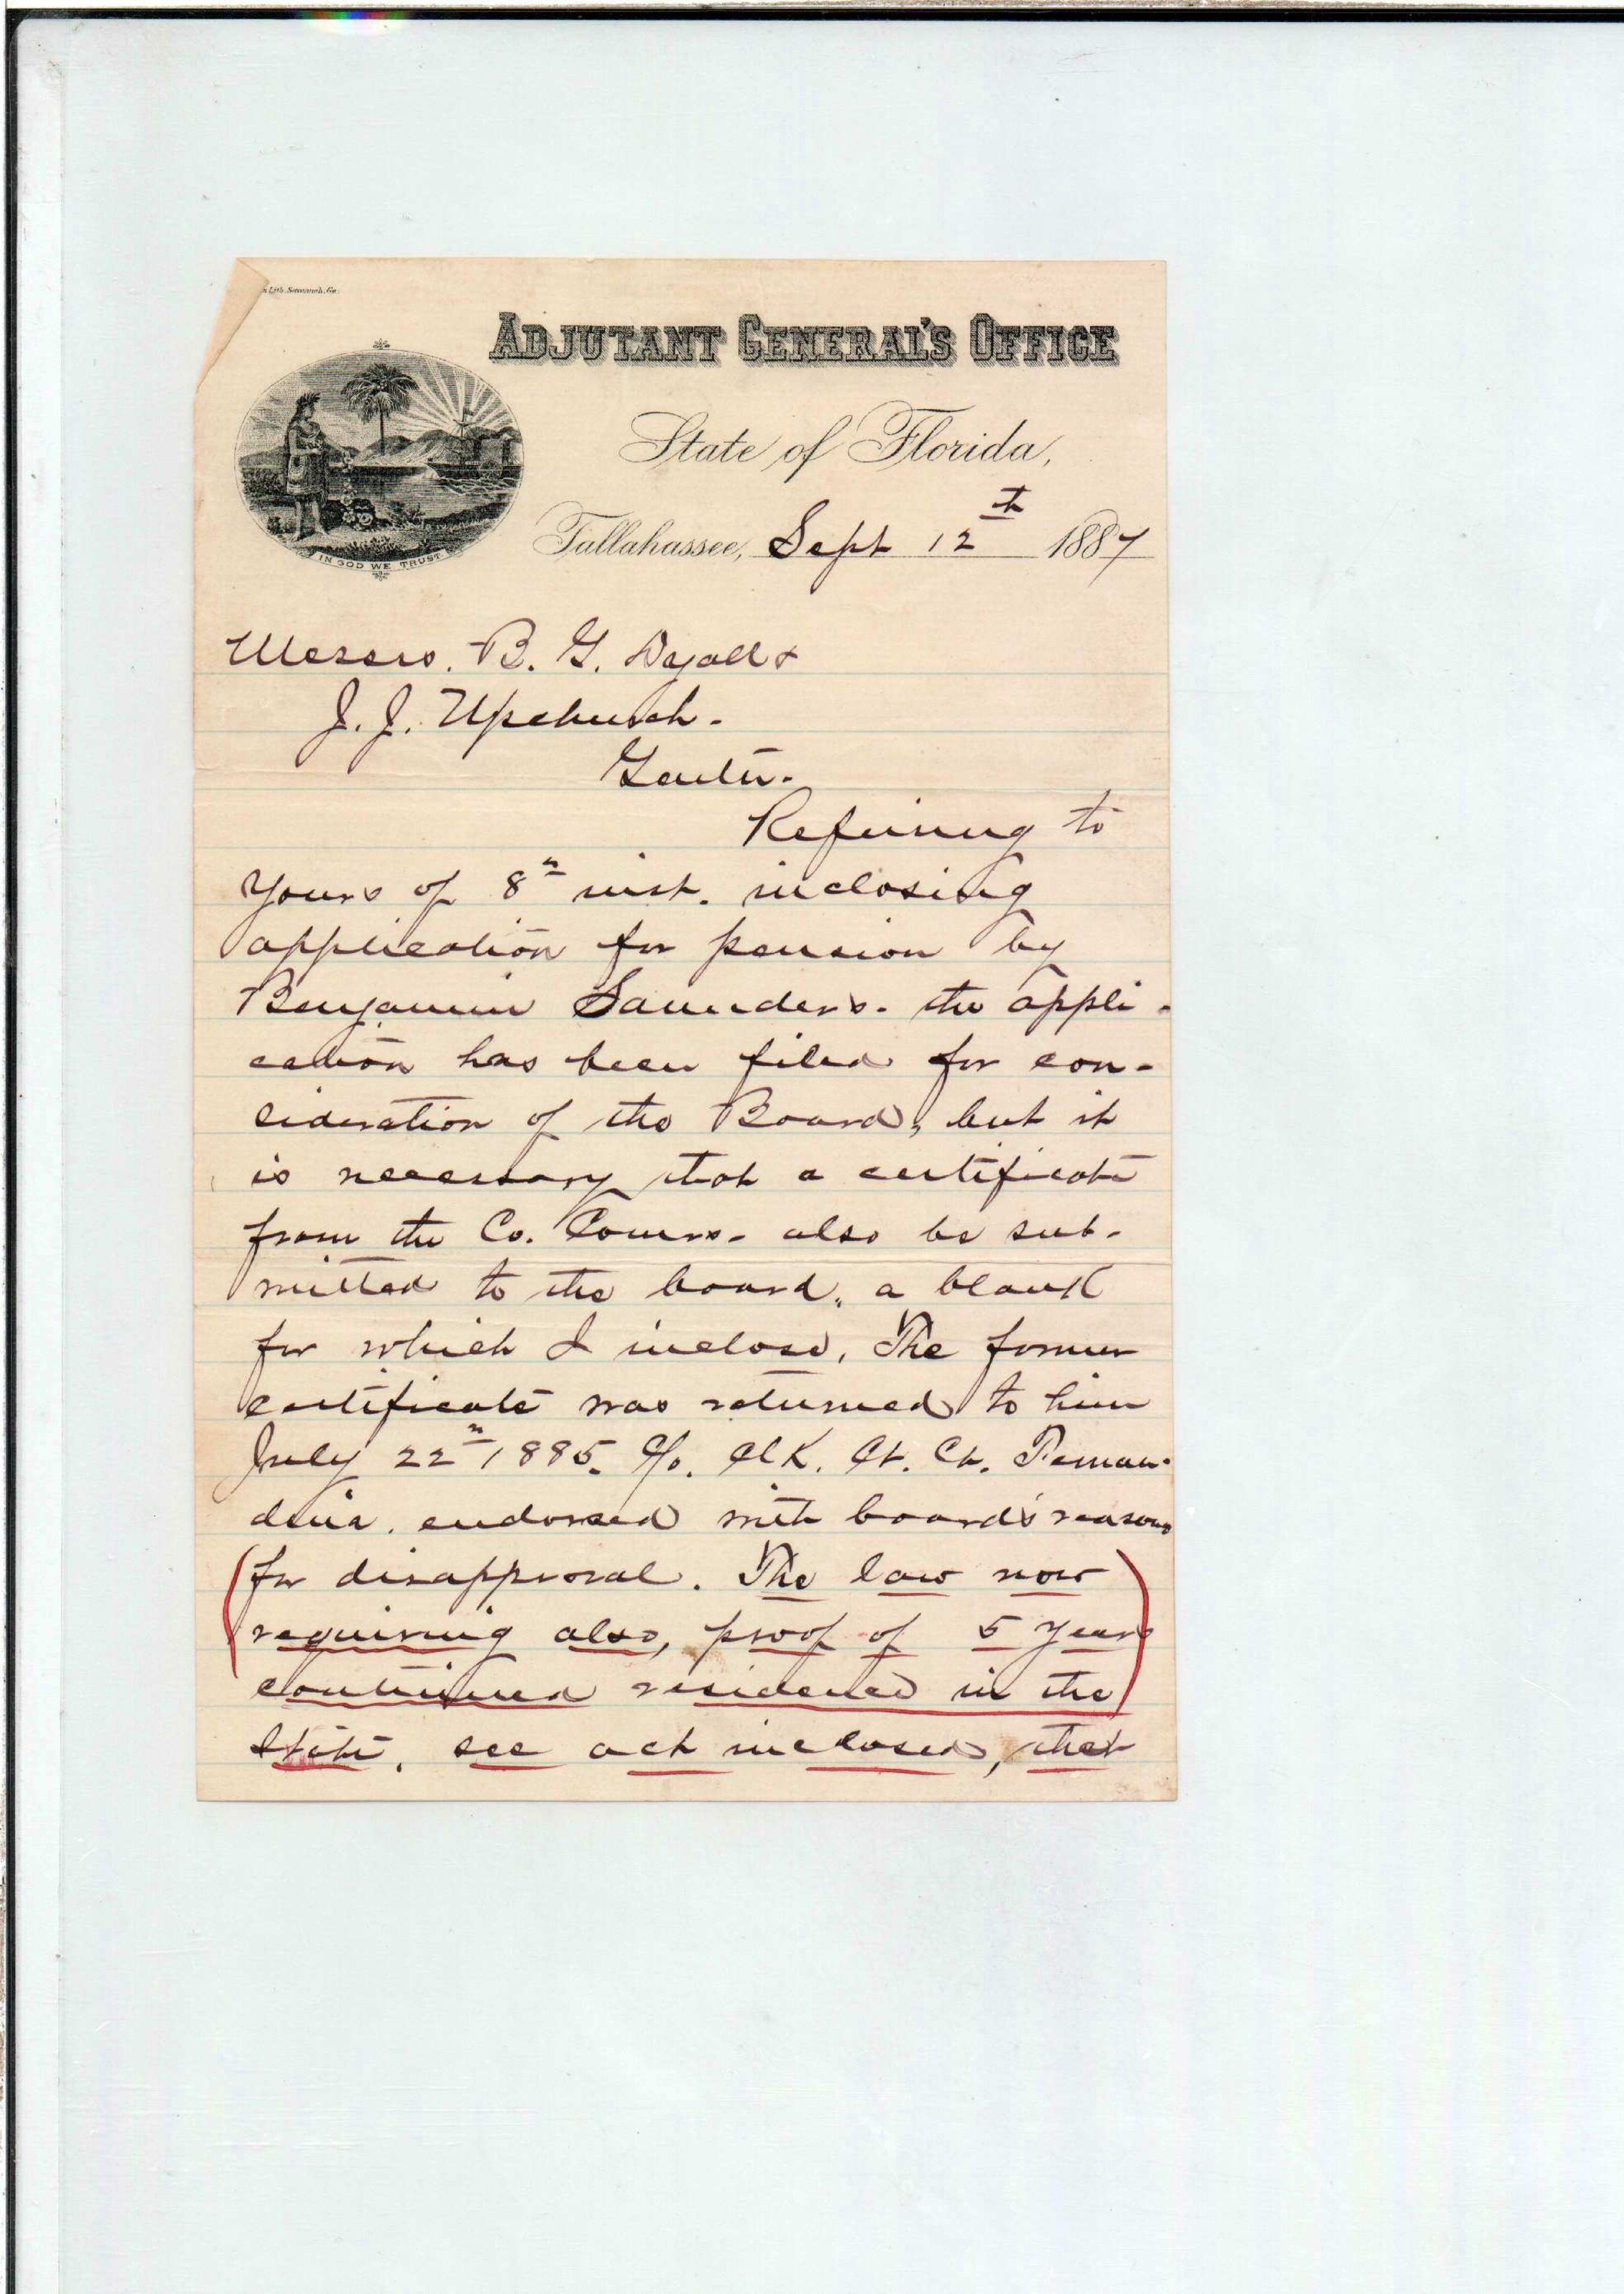 Lith. Savannah, Ga.
ADJUTANT GENERAL'S OFFICE
State of Florida,
Tallahassee, Sept 12th 1887
IN GOD WE TRUST
Messrs. B. G. Dyall &
J. J. Upchurch.
Gents.
Refering to
yours of 8th inst. inclosing
application for pension by
Benjamin Saunders. the appli-
cation has been filed for con-
sideration of the Board, but it
is necessary that a certificate
from the Co. Comrs. also be sub-
mitted to the board, a blank
for which I inclose. The former
certificate was returned to him
July 22n 1885. c/o. Clk. Ct. Ct. Fernan-
dina. endorsed with board's reasons
for disapproval. The law now
requiring also, proof of 5 years
continued residence in the
State, see act inclosed, that